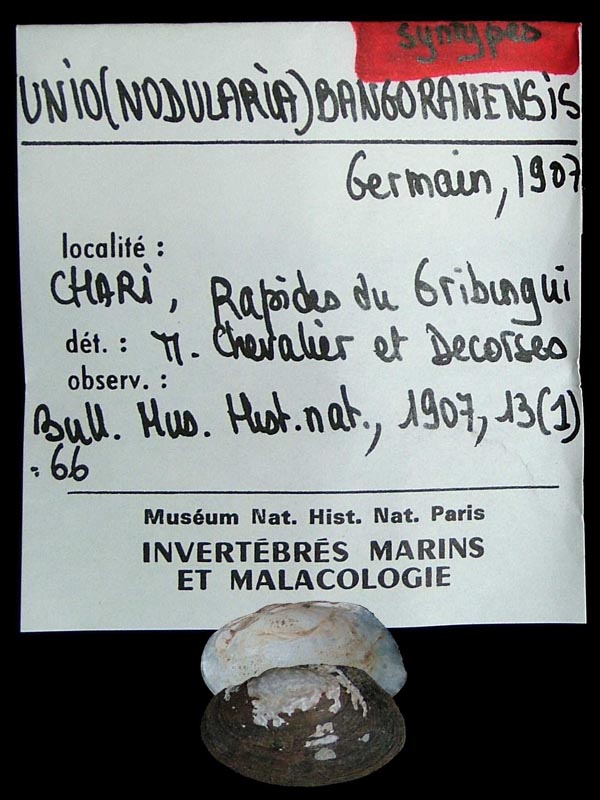 syntypes
UNIO(NODULARIA)BANGORANENSIS
Germain, 1907
localité :
CHARI, Rapides du Gribungui
dét. : M. Chevalier et Decorses
observ. :
Bull. Mus. Hist.nat., 1907, 13(1)
:66
Muséum Nat. Hist. Nat. Paris
INVERTÉBRÉS MARINS
ET MALACOLOGIE